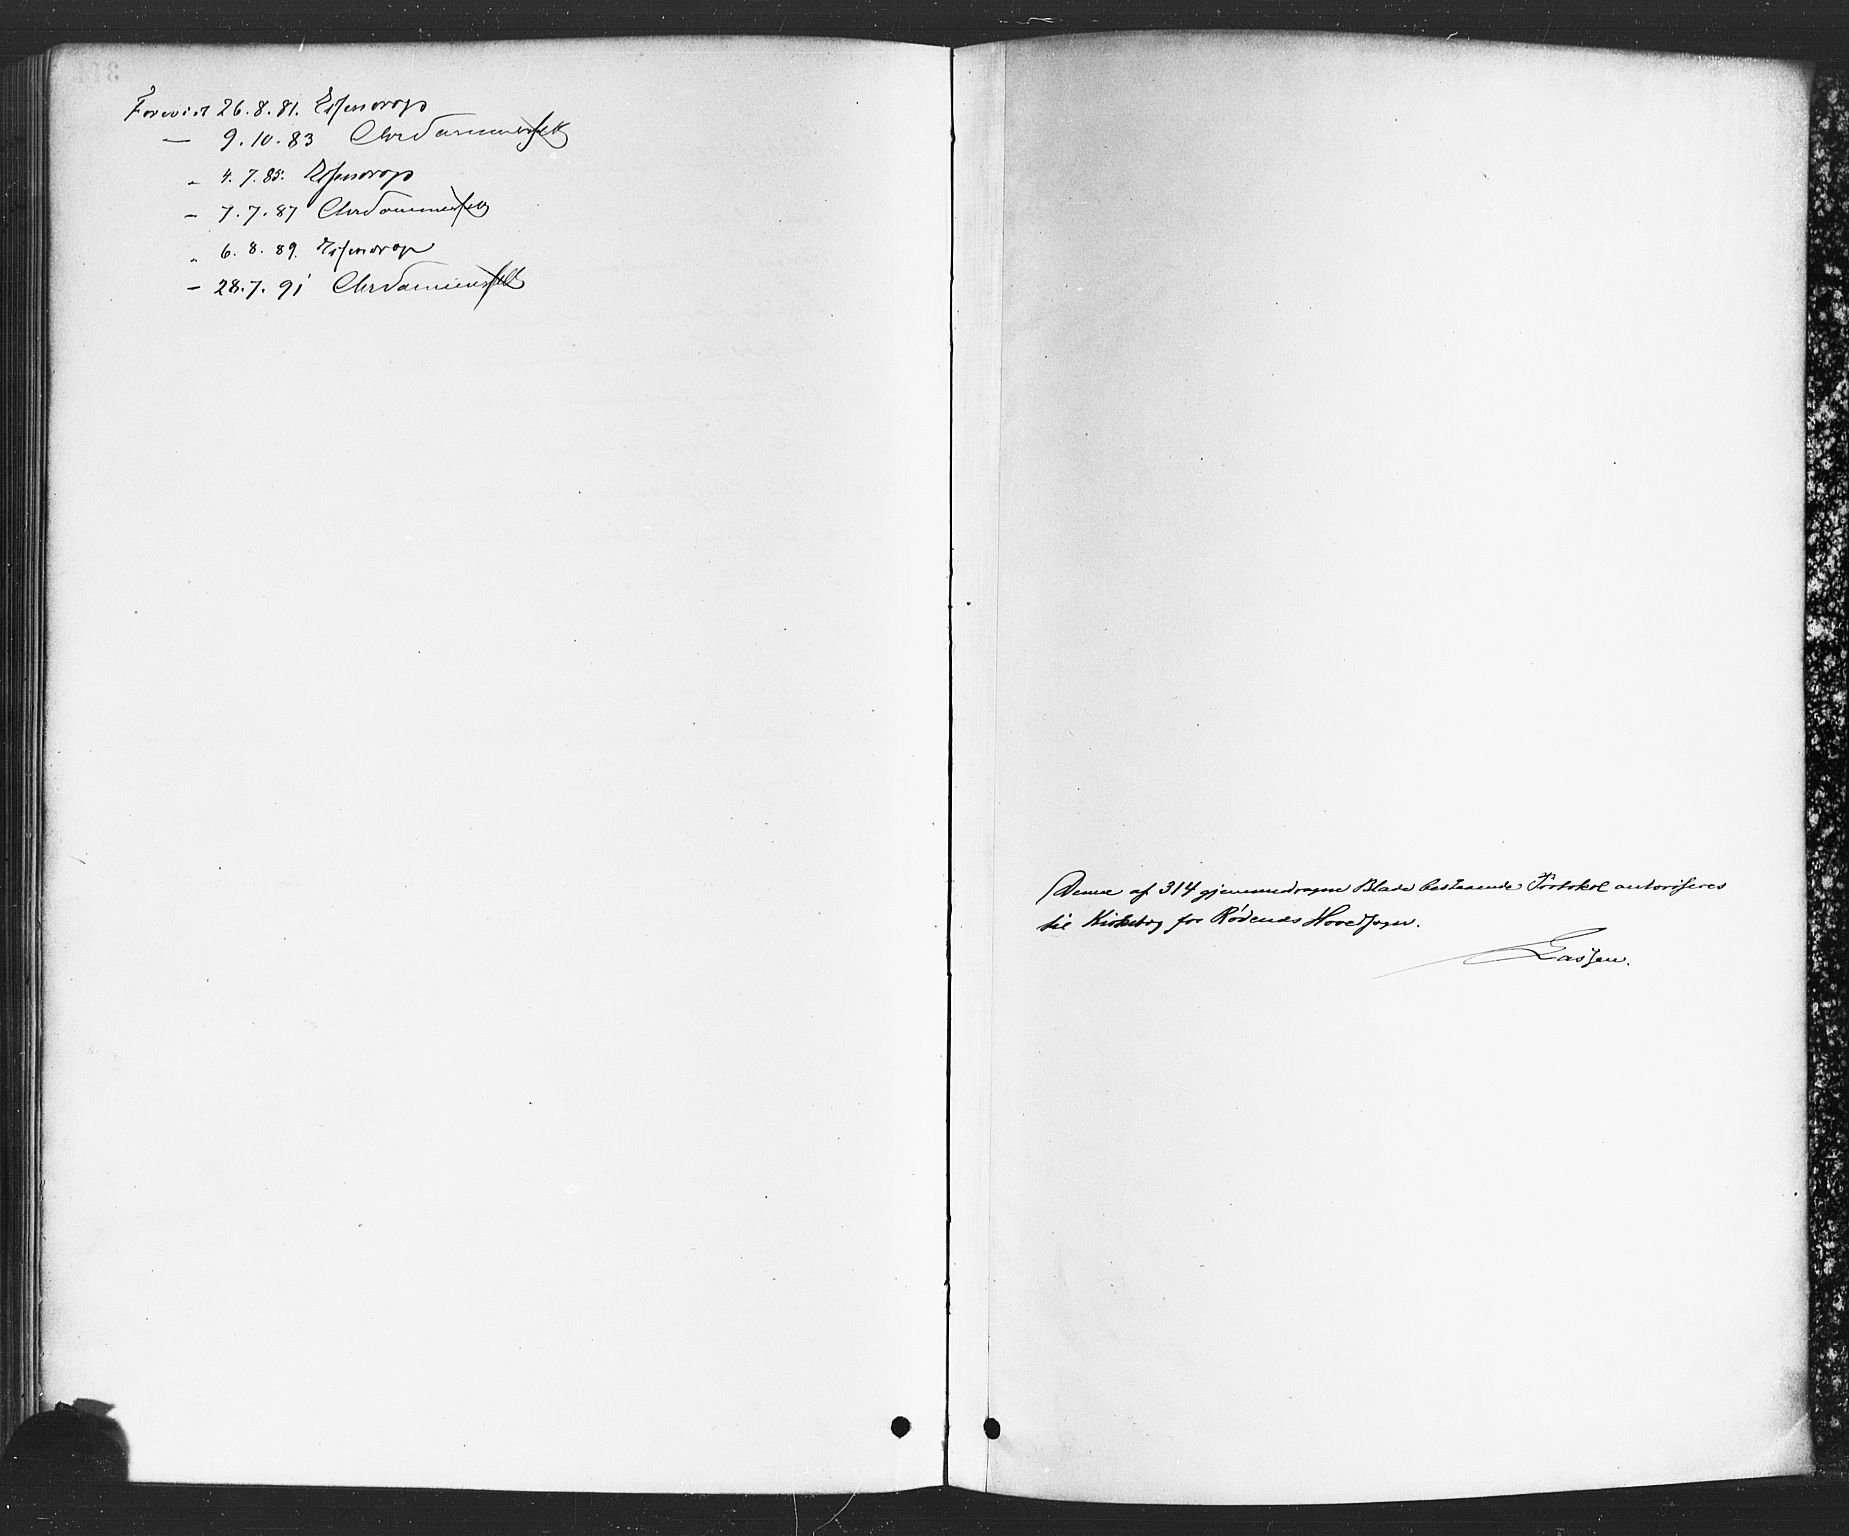 Forevist 26.8.81. Essendrop
— 9.10.83 Chr Dammenfelt
„ 4.7.85. Essendrop
– 7.7.87 Chr Dammenfelt
„ 6.8.89. Essendrop
– 28.7.91 Chr Dammenfelt
Denne af 314 gjennemdragne Blade bestaaende Protokol autoriseres
til Kirkebog for Rødenes Hovedsogn.
Lassen.